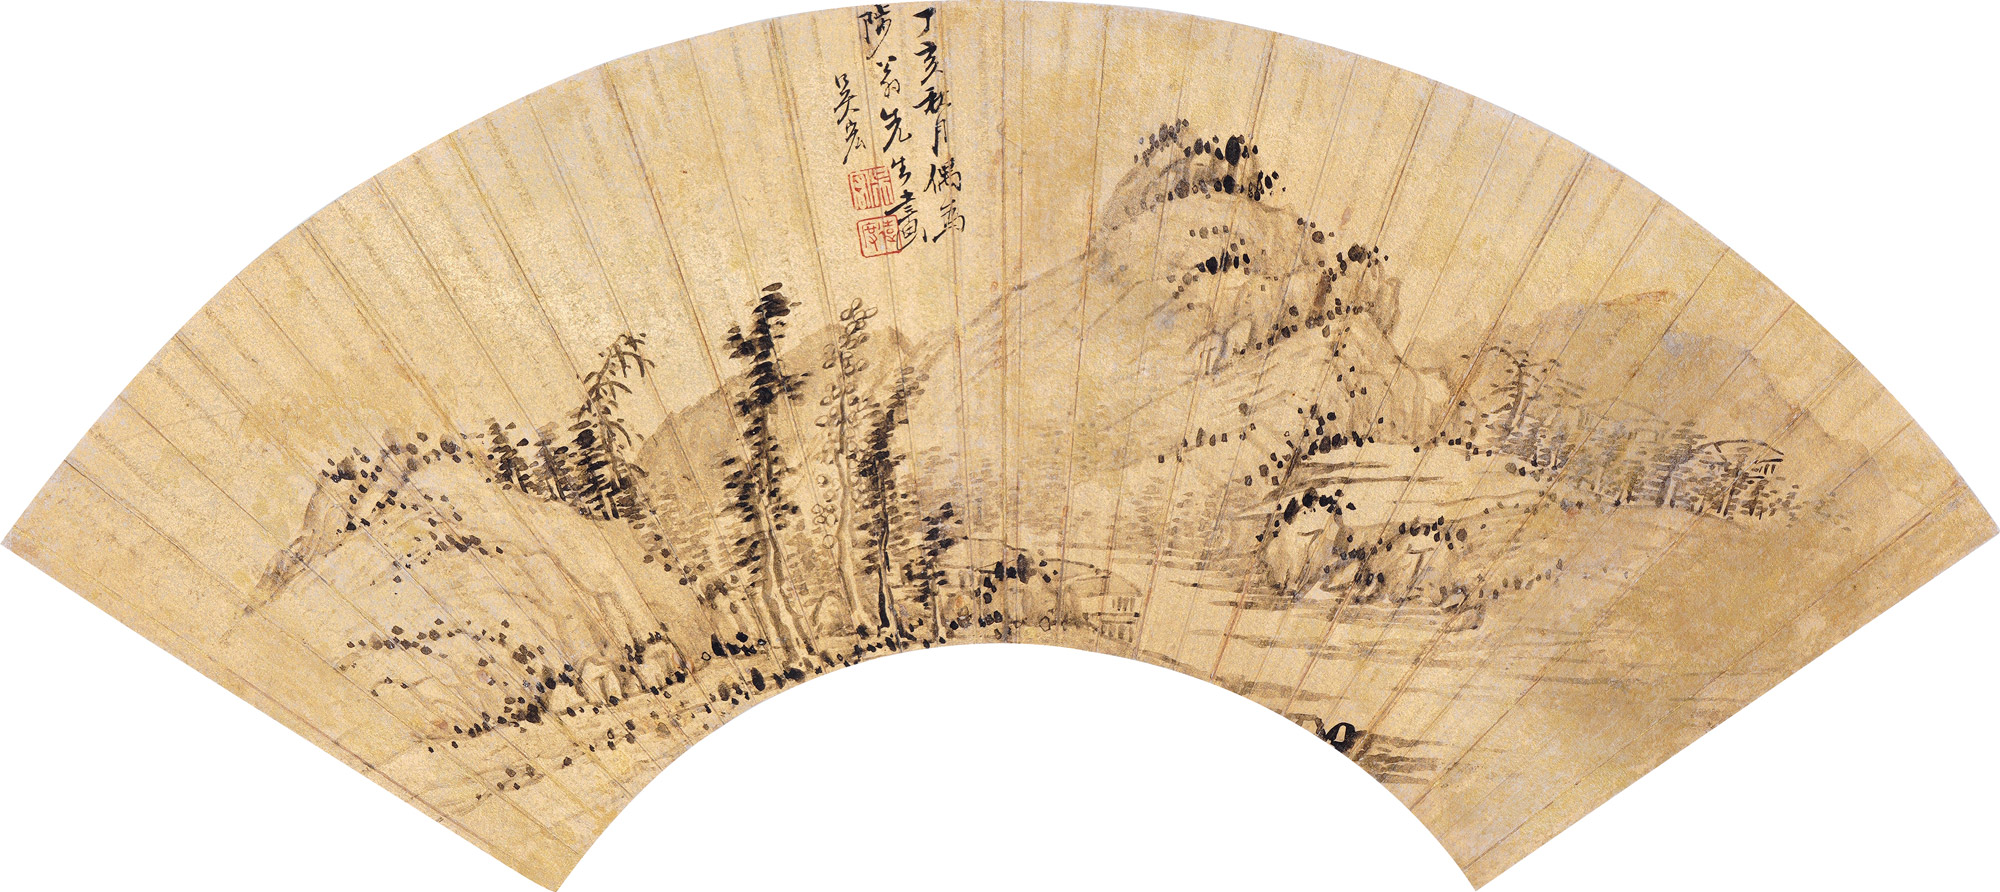 丁亥秋月偶為
陟翁先生畫
吳宏
遠度